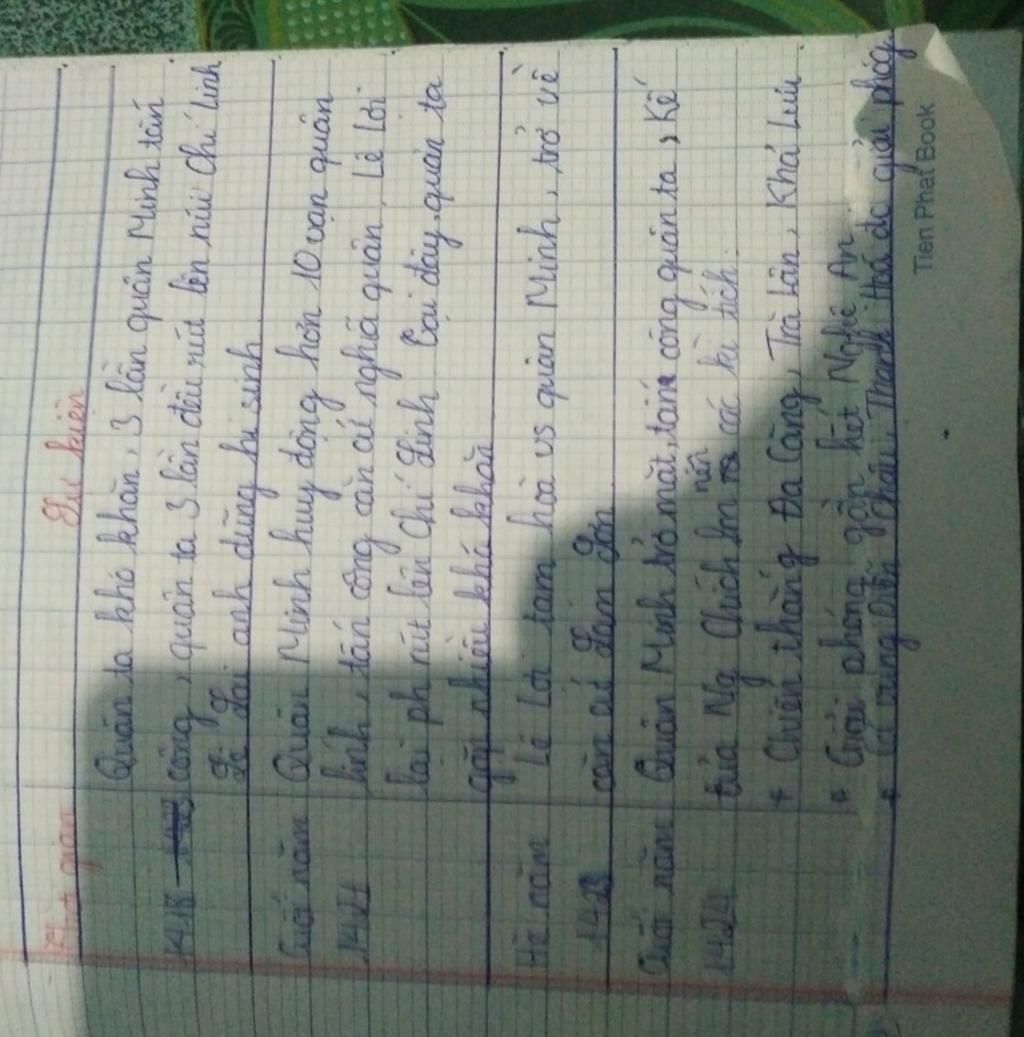 Thời gian Sự kiện
Quân ta khó khăn, 3 lần quân Minh tấn
1418 công, quân ta 3 lần đều rút lên núi Chí Linh
Lê Lai anh dũng hi sinh
Cuối năm Quân Minh huy động hơn 10 vạn quân
1421 lính, tấn công căn cứ nghĩa quân, Lê Lợi
lại ph rút lên Chí Linh. Tại đây, quân ta
gặp nhiều khó khăn
Hè năm Lê Lợi tạm hoà vs quân Minh, trở về
1423 căn cứ Lam Sơn
Cuối năm Quân Minh trở mặt, tấn công quân ta, kế
1424 của Ng Chích hm nên các kì tích:
+ Chiến thắng Đa Căng, Trà Lân, Khả Lưu
+ Giải phóng gần hết Nghệ An
+ Cả vùng Diễn Châu, Thanh Hoá đc giải phóg
Tien Phat Book